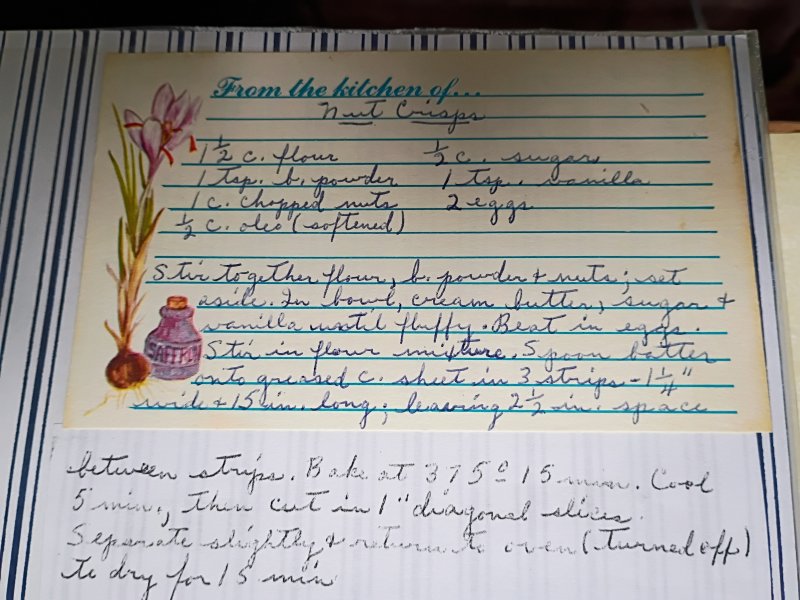 From the kitchen of...
Nut Crisps
1 1/2 c. flour 1/2 c. sugar
1 tsp. b. powder 1 tsp. vanilla
1 c. chopped nuts 2 eggs
1/2 c. oleo (softened)
Stir together flour, b. powder & nuts; set
aside. In bowl, cream butter, sugar &
vanilla until fluffy. Beat in eggs.
Stir in flour mixture. Spoon batter
onto greased c. sheet in 3 strips - 1 1/4"
wide & 15 in. long; leaving 2 1/2 in. space
SAFFRON
between strips. Bake at 375° 15 min. Cool
5 min., then cut in 1" diagonal slices.
Separate slightly & return to oven (turned off)
to dry for 15 min